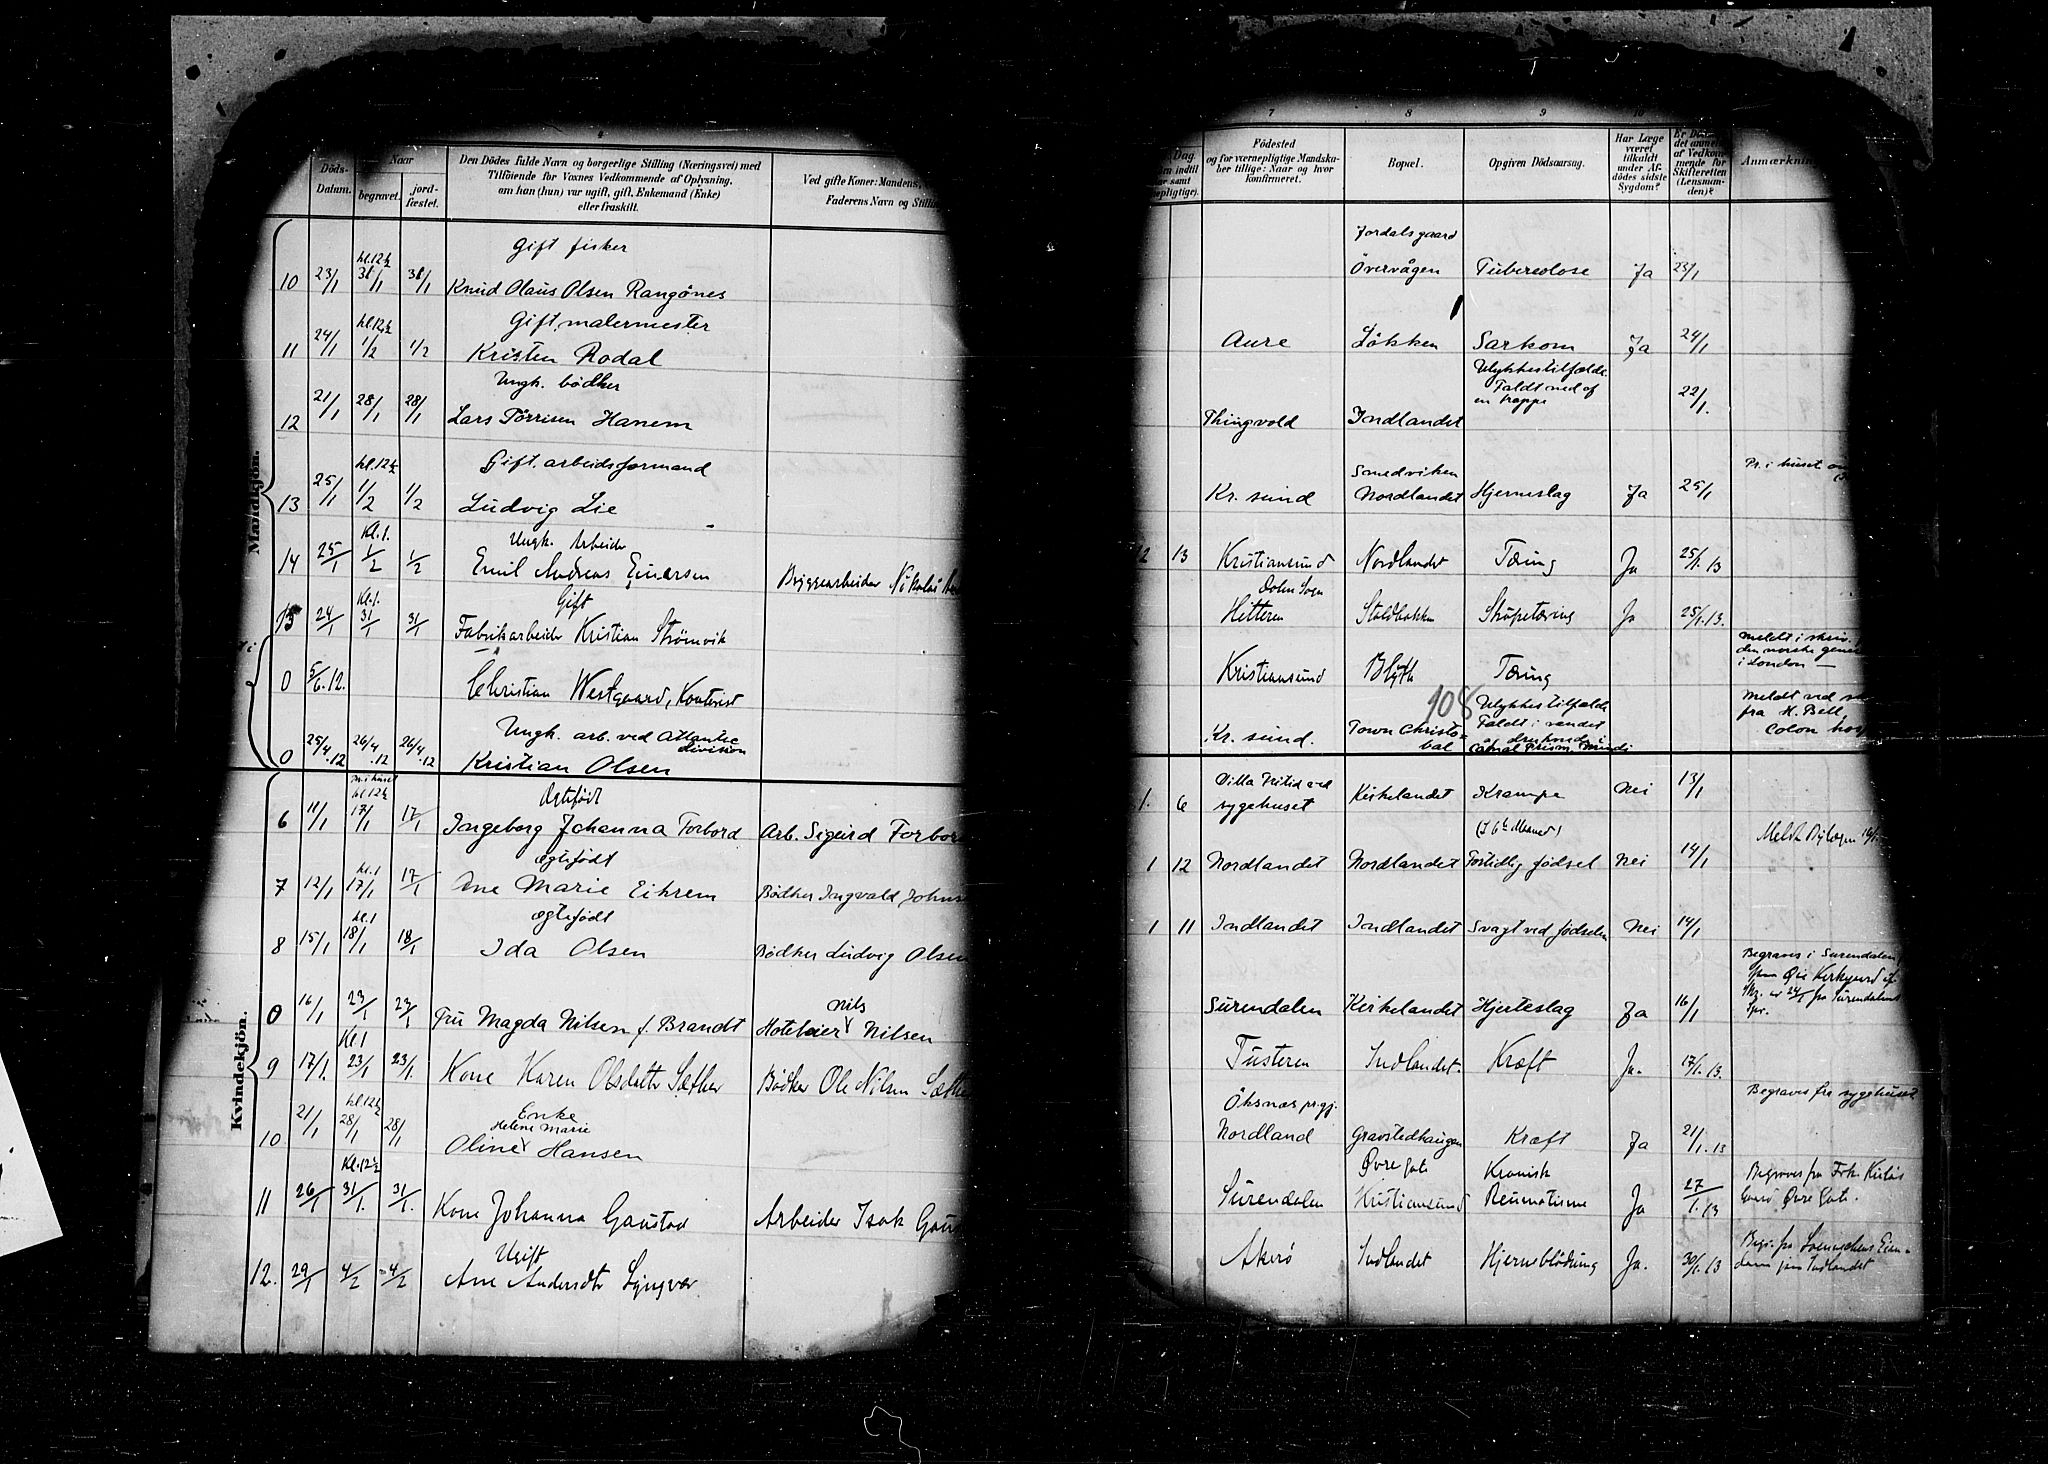 6
Döds-
Datum.
Naar
begravet.
jord-
fæstet.
Den Dödes fulde Navn og borgerlige Stilling (Næringsvei) med
Tilföiende for Voxnes Vedkommende af Oplysning,
om han (hun) var ugift, gift, Enkemand (Enke)
eller fraskilt.
Ved gifte Koner: Mandens,
Faderens Navn og Stillin
Mandkjön.
Gift fisker
10 23/1 kl. 12½ 31/1 31/1 Knud Olaus Olsen Rangönes
Gift, malermester
11 24/1 kl. 12½ 1/2 1/2 Kristen Rodal
Ungk. bödker
12 21/1 28/1 28/1 Lars Törrisen Hanem
Gift. arbeidsformand
13 25/1 kl. 12½ 1/2 1/2 Ludvig Lie
Ungk. Arbeider
14 25/1 Kl. 1. 1/2 1/2 Emil Andreas Einersen Bryggearbeider Nikolai
Gift
15 24/1 Kl. 1. 31/1 31/1 Fabrikarbeider Kristian Strömvik
0 5/6.12. Christian Westgaard, Kontorist
Ungk. arb. ved Atlantic
division
0 25/4.12 26/4.12 26/4.12 Kristian Olsen
Kvindekjön.
Ægtefödt
6 11/1 kl. 12½ 17/1 17/1 Ingeborg Johanna Forbord Arb. Sigurd Forbor
ægtefödt
7 12/1 kl. 1 17/1 17/1 Ane Marie Eikrem Bödker Ingvald Johns
ægtefödt
8 15/1 kl. 1 18/1 18/1 Ida Olsen Bödker Ludvig Olsen
Nils
0 16/1 23/1 23/1 Fru Magda Nilsen f. Brandt Hoteleier Nilsen
9 17/1. Kl 1 23/1 23/1. Kone Karen Olsdatter Sæther Bödker Ole Nilsen Sæthe
Enke
Helene Marie
10 21/1 kl. 12½ 28/1 28/1 Oline Hansen
11 26/1 Kl. 12½ 31/1. 31/1. Kone Johanna Gaustad Arbeider Isak Gau
Ugift
12. 29/1 4/2 4/2 Ane Andersdtr Lyngvær
7
8
9
10
Dag
Födested
og for værnepligtige Mandska-
ber tillige: Naar og hvor
konfirmeret.
Bopæl.
Opgiven Dödsaarsag.
Har Læge
været
tilkaldt
under Af-
dödes sidste
Sygdom?
af Vedkom-
mende for
Skifteretten
(Lensman-
den)?
Anmærknin
Jordalsgaard
Övervågen Tuberculose Ja 23/1
Aure Lökken Sarkom Ja 24/1
Ulykkestilfælde.
Faldt ned af
en trappe
22/1.
Thingvold Indlandet
Smedviken
Kr. sund Nordlandet Hjerneslag Ja 25/1
Pr. i huset
12 13 Kristiansund Nordlandet Tæring Ja 25/1.13
Dolm Sogn
Hitteren Staldbakken Strupetæring Ja 25/1.13.
Kristiansund Blyth Tæring
Meldt i skriv.
den norske gene
i London —
108
Kr. sund. Town Christo-
bal
Ulykkestilfælde
Faldt i vandet
Meldt ved
fra H. Bell,
Colon hos
1. 6 sygehuset Kirkelandet Krampe Nei 13/1
1 12 Nordlandet Nordlandet Fortidlig födsel Nei 14/1
1 11 Indlandet Indlandet Svagt ved födselen Nei 14/1
Surendalen Kirkelandet Hjerteslag Ja 16/1
Begraves i Surendalen
Tusteren Indlandet. Kræft Ja. 17/1.13.
Öksnes pr.gj.
Nordland Gravstedhaugen Kræft Ja 21/1.13
Begraves fra sygehuset
Øvre gate
Kronisk
Surendalen Kristiansund Reumatisme Ja 27/1.13
Begraves fra
Øvre Gate.
Akerö Indlandet Hjerneblödning Ja. 30/1.13
Indlandet